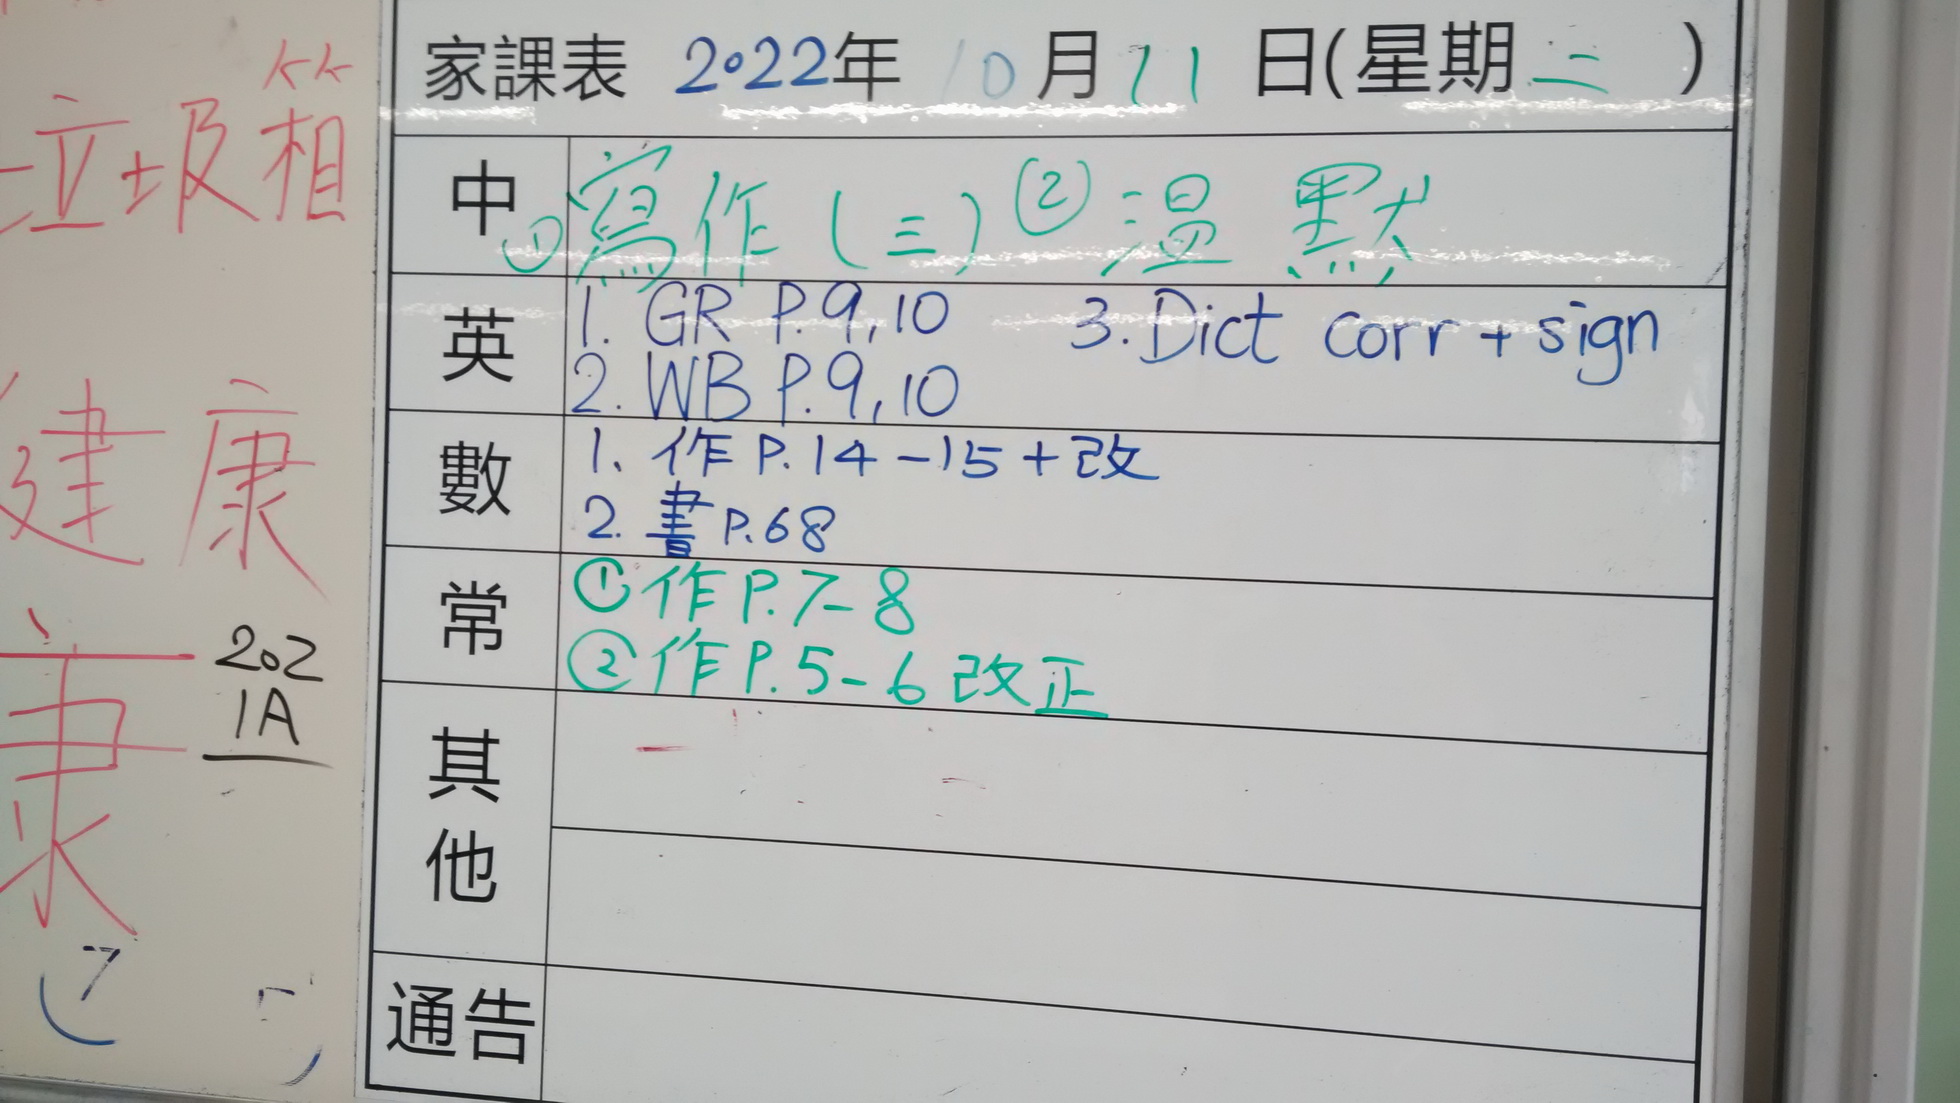 垃圾箱
健康
康
202
1A
7
家課表 2022年 10月11日(星期二)
中 ①寫作(三) ②溫默
英 1. GR P.9,10 3. Dict corr + sign
2. WB P.9,10
數 1. 作 P.14-15+改
2. 書 P.68
常 ①作 P.7-8
②作 P.5-6 改正
其他
通告